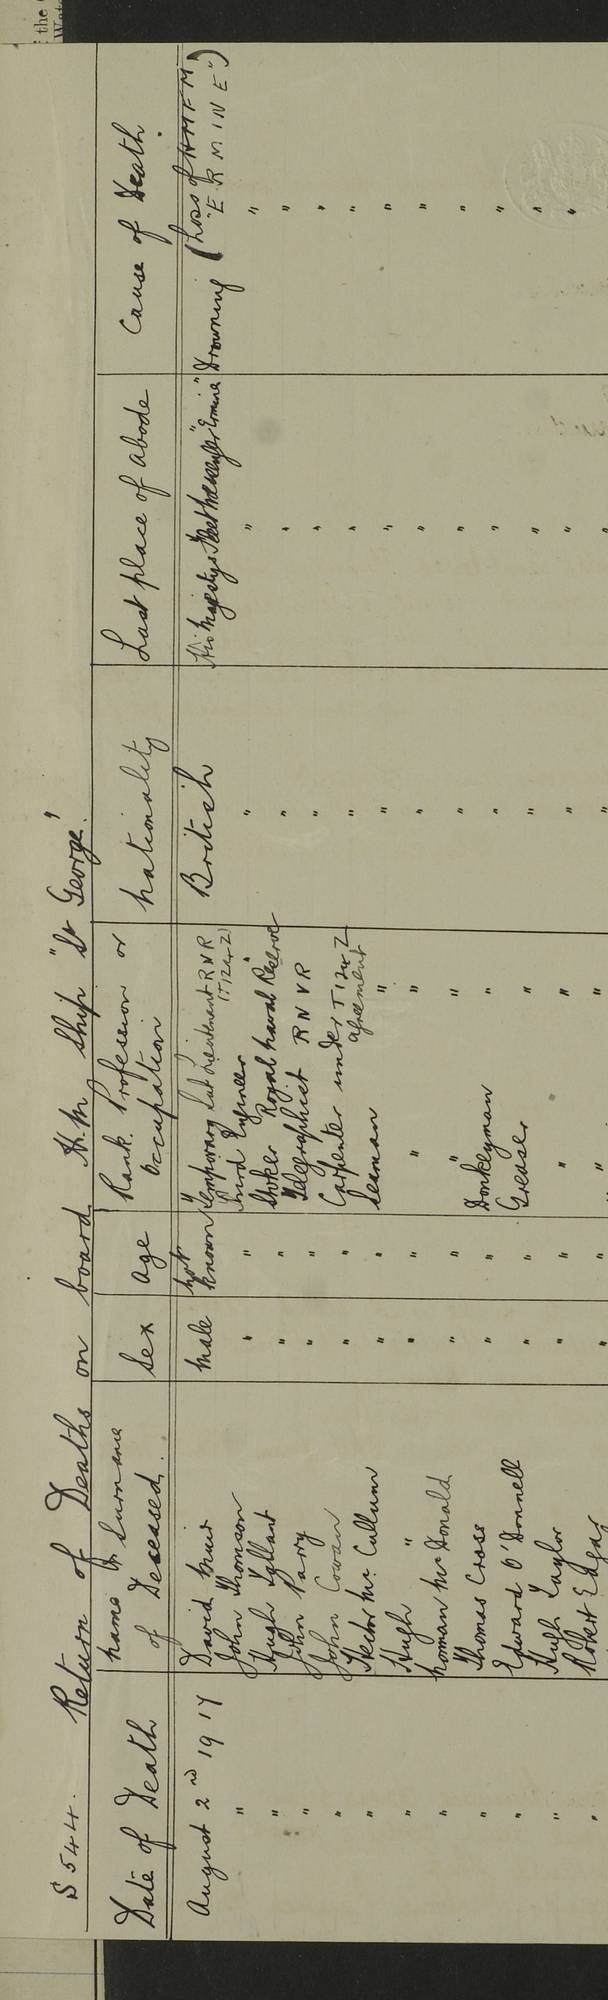 of the
Wate
S 544. Return of Deaths on board H.M. Ship "St George".
Date of Death | Name & Surname of Deceased. | Sex | Age | Rank. Profession or Occupation | Nationality | Last place of Abode | Cause of Death.
August 2nd 1917 | David Muir | Male | Not known | Temporary Sub Lieutenant RNR (T124Z) | British | His Majesty's Fleet Messenger "Ermine" | Drowning (Loss of HMFM "ERMINE")
" | John Thomson | " | " | Third Engineer | " | " | "
" | Hugh | " | " | Stoker Royal Naval Reserve | " | " | "
" | John Parry | " | " | Telegraphist RNVR | " | " | "
" | John Cowan | " | " | Carpenter under T124Z agreement | " | " | "
" | Hector McCullum | " | " | Seaman " | " | " | "
" | Hugh " | " | " | " " | " | " | "
" | Norman McDonald | " | " | " " | " | " | "
" | Thomas Cross | " | " | Donkeyman " | " | " | "
" | Edward O'Donnell | " | " | Greaser " | " | " | "
" | Hugh Taylor | " | " | " " | " | " | "
" | Robert Edgar | " | " | " " | " | " | "